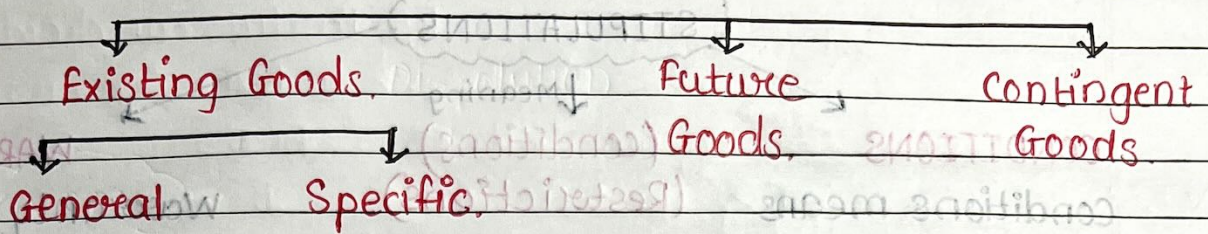 Existing Goods. Future Contingent
Goods. Goods.
General Specific.